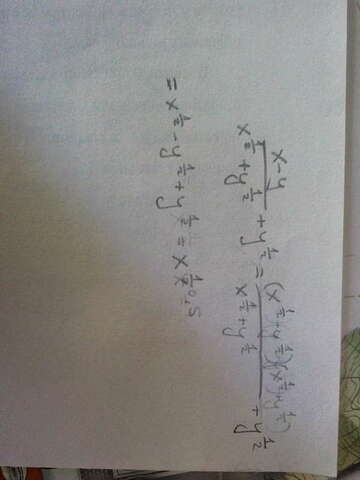 \frac{x-y}{x^{\frac{1}{2}}+y^{\frac{1}{2}}}+y^{\frac{1}{2}}=\frac{(x^{\frac{1}{2}}+y^{\frac{1}{2}})(x^{\frac{1}{2}}+y^{\frac{1}{2}})}{x^{\frac{1}{2}}+y^{\frac{1}{2}}}+y^{\frac{1}{2}}
=x^{\frac{1}{2}}-y^{\frac{1}{2}}+y^{\frac{1}{2}}=x